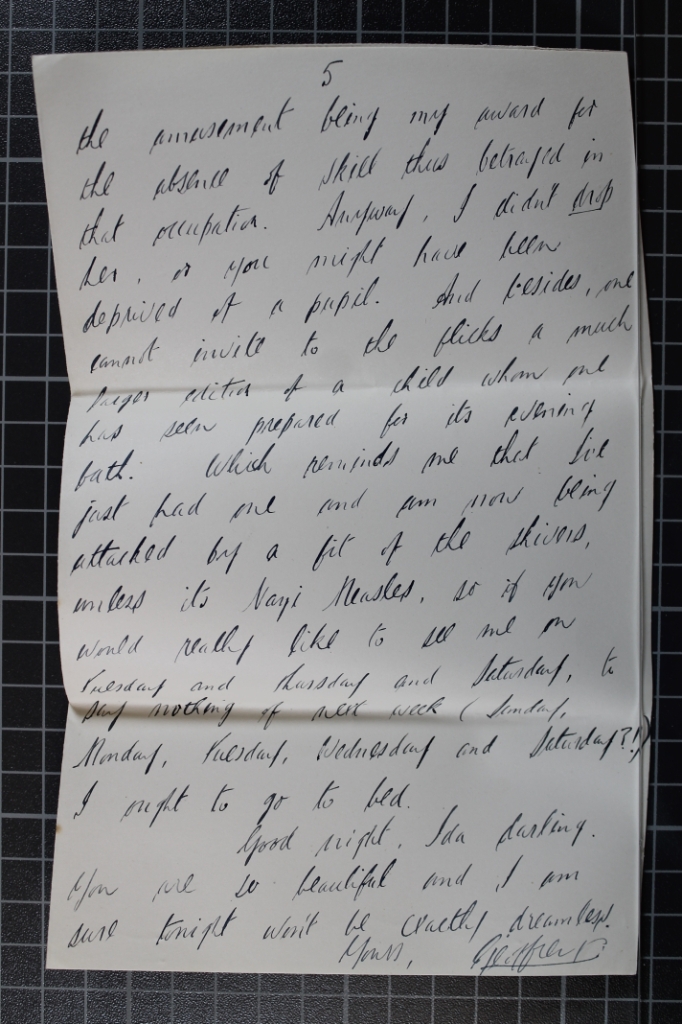 5
the amusement being my award for
the absence of skill thus betrayed in
that occupation. Anyway, I didn't drop
her, or you might have been
deprived of a pupil. And besides, one
cannot invite to the flicks a much
larger edition of a child whom one
has seen prepared for its evening
bath. Which reminds me that I've
just had one and am now being
attacked by a fit of the shivers,
unless its Nazi Measles, so if you
would really like to see me on
Tuesday and Thursday and Saturday, to
say nothing of next week (Sunday,
Monday, Tuesday, Wednesday and Saturday?!)
I ought to go to bed.
Good night, Ida darling.
You are so beautiful and I am
sure tonight won't be exactly dreamless.
Yours, Geoffrey